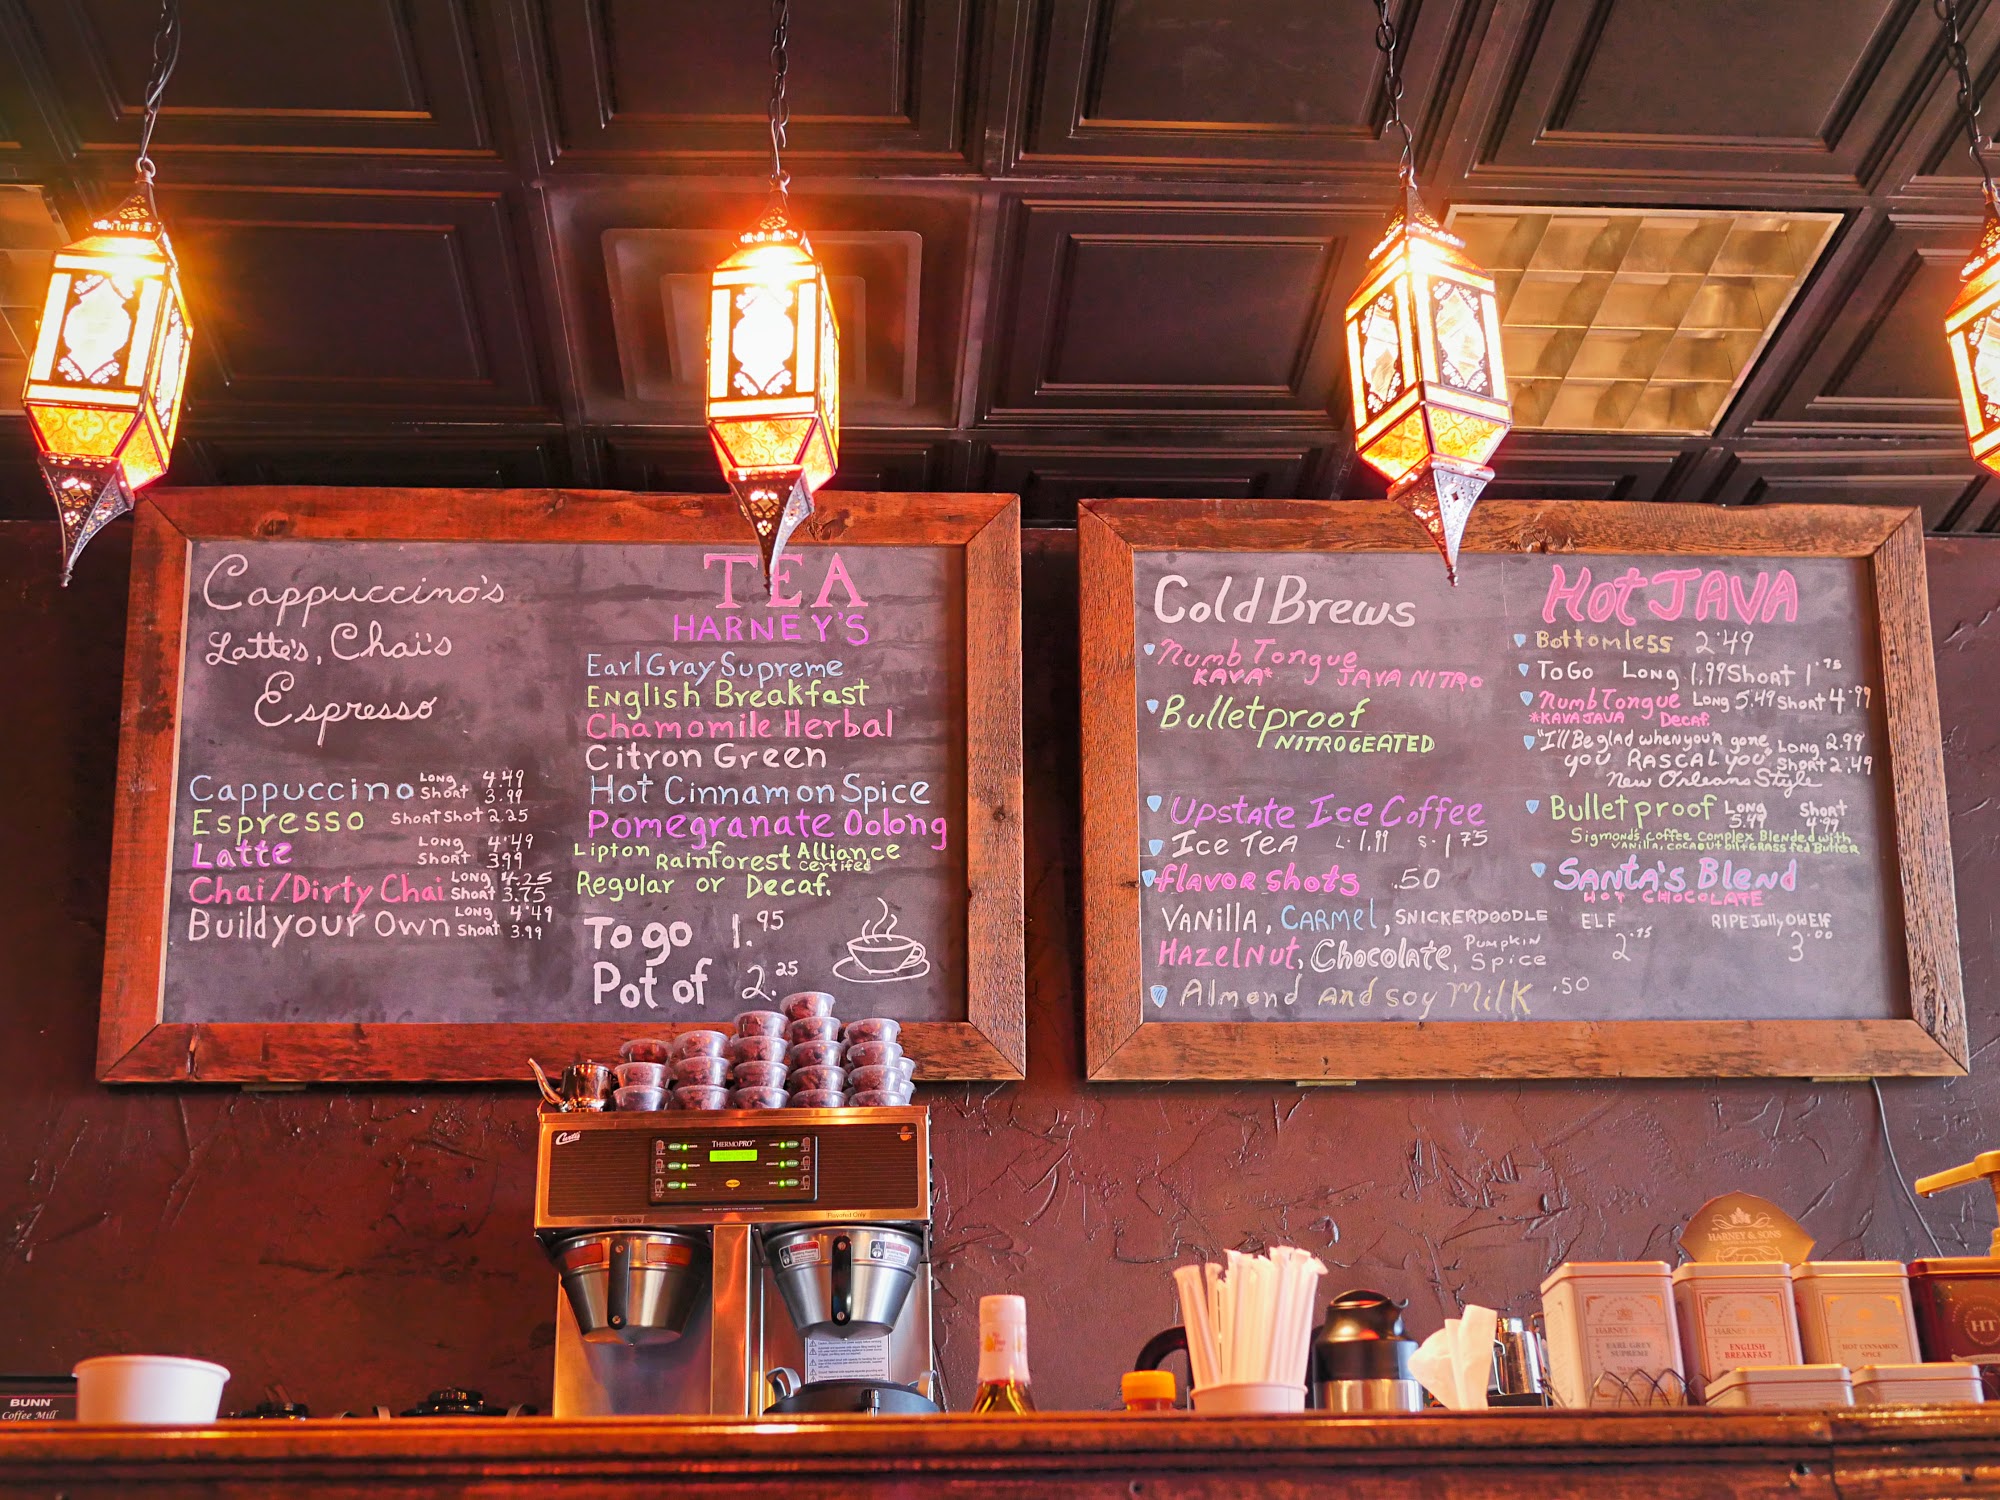 Cappuccino's
Latte's, Chai's
Espresso
Cappuccino Long 4.49
Short 3.99
Espresso Short Shot 2.25
Latte Long 4.49
Short 3.99
Chai/Dirty Chai Long 4.25
Short 3.75
Build your Own Long 4.49
Short 3.99
TEA
HARNEY'S
Earl Gray Supreme
English Breakfast
Chamomile Herbal
Citron Green
Hot Cinnamon Spice
Pomegranate Oolong
Lipton Rainforest Alliance
Certified
Regular or Decaf.
To go 1.95
Pot of 2.25
Cold Brews
Numb Tongue
KAVA* JAVA NITRO
Bulletproof
NITROGEATED
Upstate Ice Coffee
Ice TEA L. 1.99 S. 1.75
flavor shots .50
VANILLA, CARMEL, SNICKERDOODLE
HAZELNUT, Chocolate, Pumpkin
Spice
Almond and soy Milk .50
Hot JAVA
Bottomless 2.49
To Go Long 1.99 Short 1.75
Numb Tongue Long 5.49 Short 4.99
*KAVA JAVA Decaf.
"I'll Be glad when you'r gone Long 2.99
you RASCAL you" Short 2.49
New Orleans Style
Bulletproof Long Short
5.49 4.99
Sigmond's Coffee Complex Blended with
Vanilla, Cocaout oil + Grass fed Butter
SANTA'S Blend
HOT CHOCOLATE
ELF RIPE Jolly Old Elf
2.75 3.00
Curtis
THERMOPRO
Flavored Only
BUNN
Coffee Mill
HARNEY & SONS
HARNEY & SONS
EARL GREY
SUPREME
ENGLISH
BREAKFAST
HOT CINNAMON
SPICE
HT